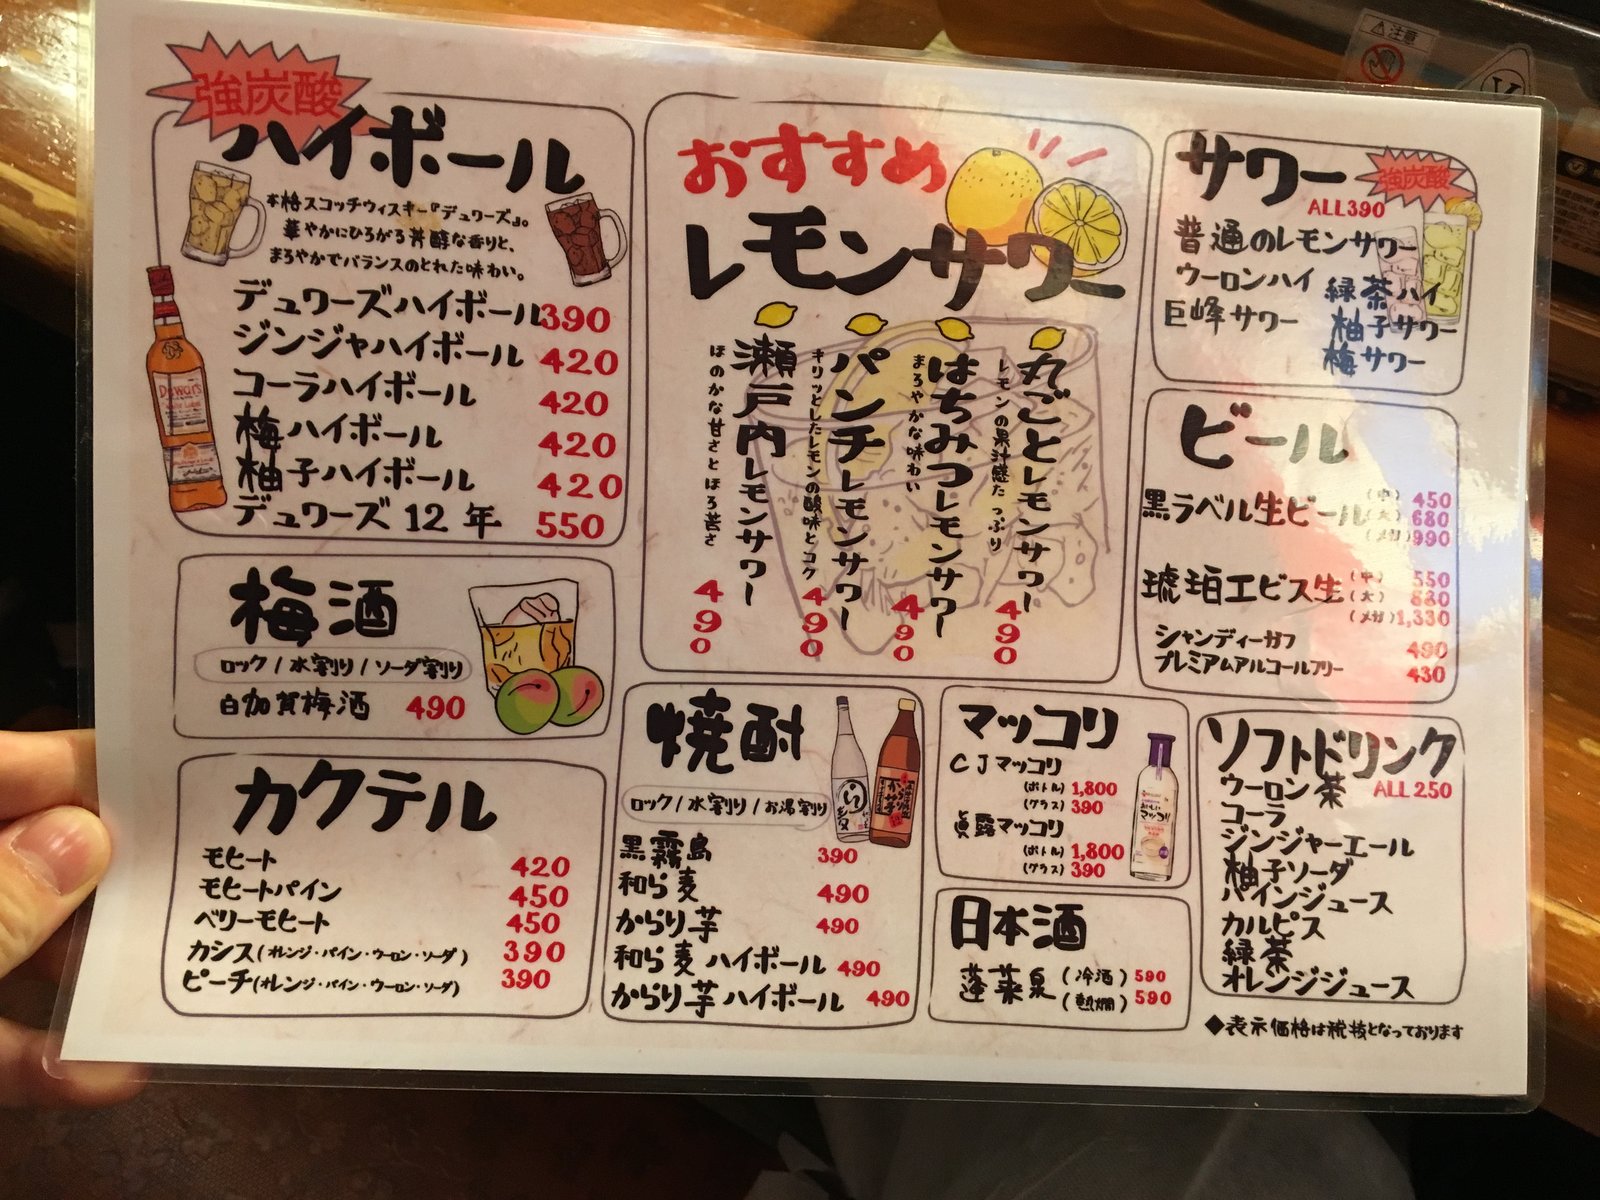 強炭酸
ハイボール
本格スコッチウィスキー『デュワーズ』。
華やかにひろがる芳醇な香りと、
まろやかでバランスのとれた味わい。
デュワーズハイボール 390
ジンジャハイボール 420
コーラハイボール 420
梅ハイボール 420
柚子ハイボール 420
デュワーズ 12年 550
梅酒
ロック/水割り/ソーダ割り
白加賀梅酒 490
カクテル
モヒート 420
モヒートパイン 450
ベリーモヒート 450
カシス(オレンジ・パイン・ウーロン・ソーダ) 390
ピーチ(オレンジ・パイン・ウーロン・ソーダ) 390
おすすめ
レモンサワー
丸ごとレモンサワー 490
レモンの果汁感たっぷり
はちみつレモンサワー 490
まろやかな味わい
パンチレモンサワー 490
キリッとしたレモンの酸味とコク
瀬戸内レモンサワー 490
ほのかな甘さとほろ苦さ
焼酎
ロック/水割り/お湯割り
黒霧島 390
和ら麦 490
からり芋 490
和ら麦ハイボール 490
からり芋ハイボール 490
マッコリ
CJマッコリ
(ボトル) 1,800
(グラス) 390
眞露マッコリ
(ボトル) 1,800
(グラス) 390
おいしい
マッコリ
日本酒
蓬莱泉 (冷酒) 590
(熱燗) 590
サワー
強炭酸
ALL390
普通のレモンサワー
ウーロンハイ
緑茶ハイ
巨峰サワー
柚子サワー
梅サワー
ビール
黒ラベル生ビール (中) 450
(大) 680
(メガ) 990
琥珀エビス生 (中) 550
(大) 880
(メガ) 1,330
シャンディーガフ 490
プレミアムアルコールフリー 430
ソフトドリンク
ALL250
ウーロン茶
コーラ
ジンジャーエール
柚子ソーダ
パインジュース
カルピス
緑茶
オレンジジュース
◆表示価格は税抜となっております
注意